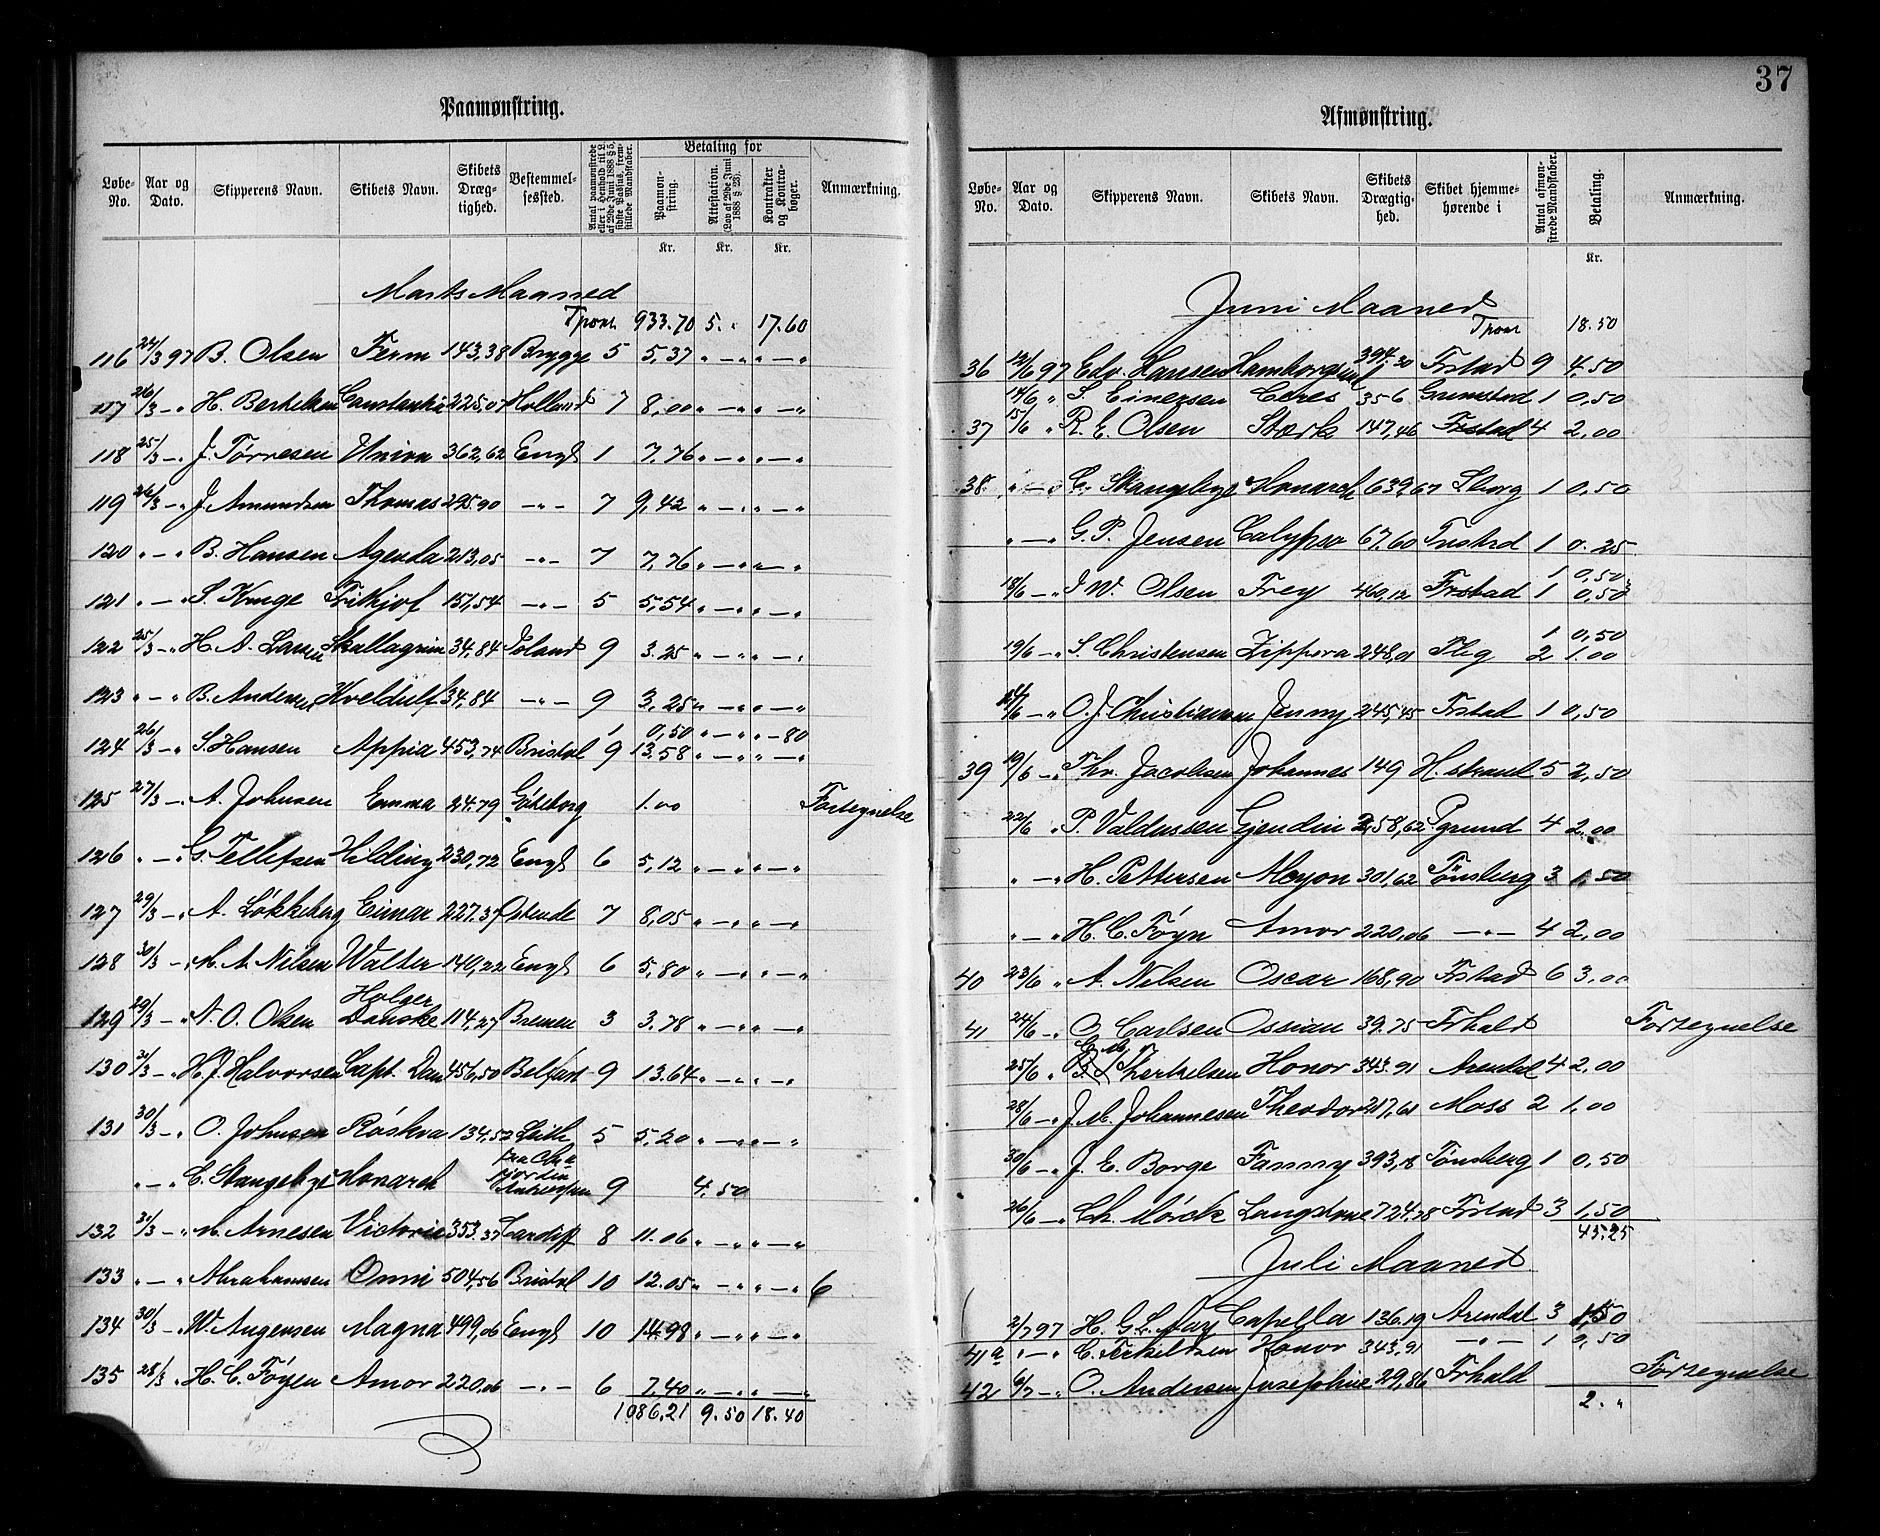 37
Paamønstring.
Løbe-No. Aar og Dato. Skipperens Navn. Skibets Navn. Skibets Dræg-tighed. Bestemmel-sessted. Antal paamønstrede eller i Henhold til L. af 29de Juni 1888 § 5, sidste Passus, frem-stillede Mandskaber. Betaling for Paamøn-string. Attestation. (Lov af 29de Juni 1888 § 23). Kontrakter og Kontra-bøger. Anmærkning.
Kr. Kr. Kr.
Marts Maaned
Tport 933.70 5. " 17.60
116 24/3 97 B. Olsen Ferm 143,38 Brygge 5 5,37 " — " " — "
117 26/3 — " H. Bertelsen Constantia 225,07 Holland 7 8,00 " — " " — "
118 25/3 — " J. Tørresen Union 362,62 Engl 1 7,76 " — " " — "
119 26/3 — " J. Amundsen Thomas 295.90 — " — 7 9,42 " — " " — "
120 " — " B. Hansen Agenda 213,05 — " — 7 7,76 " — " " — "
121 " — " S. Kruge Frithjof 157,54 — " — 5 5,54 " — " " — "
122 25/3 — " H. A. Larsen Skallagrim 34,84 Island 9 3.25 " — " " — "
123 " — " B. Andersen Kveldulf 34,84 — " — 9 3,25 " — " " — "
1 0,50 " — " " — 80
124 26/3 — " S. Hansen Appia 453,74 Bristol 9 13.58 " — " " — "
125 27/3 — " A. Johnsen Emma 24.79 Göteborg 1.00 Fortegnelse
126 " — " G. Tellefsen Hilding 230,72 Engl 6 5,12 " — " " — "
127 29/3 — " A. Løkkeberg Einar 227.37 Ostende 7 8,05 " — " " — "
128 30/3 — " M. A. Nilsen Walter 140,22 Engl 6 5,80 " — " " — "
129 29/3 — " N. O. Olsen Holger Danske 114,27 Bremen 3 3.78 " — " " — "
130 31/3 — " H. J. Halvorsen Capt. Dan 456,50 Belfast 9 13.64 " — " " — "
131 30/3 — " O. Johnsen Røskva 134.52 Leith 5 5,20 " — " " — "
" — " C. Stangebye Monarch fra Antwerpen 9 4.50
132 31/3 — " M. Arnesen Victoria 353.37 Cardiff 8 11.06 " — " " — "
133 " — " Abrahamsen Onni 504,56 Bristol 10 12.05 " — " " — " 6
134 30/3 — " W. Angensen Magna 499,06 Engl 10 14.98 " — " " — "
135 28/3 " H. C. Føyen Amor 220,06 — " — 6 7.40 " — " " — "
1086,21 9.50 18.40
Afmønstring.
Løbe-No. Aar og Dato. Skipperens Navn. Skibets Navn. Skibets Drægtig-hed. Skibet hjemme-hørende i Antal afmøn-strede Mandskaber. Betaling. Anmærkning.
Kr.
Juni Maaned
Tport 18.50
36 12/6 97 Edv. Hansen Hamborgsund 394.30 Frstad 9 4.50
14/6 " S. Einersen Ceres 356 Grimstad 1 0,50
37 15/6 " R. E. Olsen Stærk 147,46 Frstad 4 2,00
38 " — " C. Stangebye Monarch 639,67 Sborg 1 0,50
" — " G. P. Jensen Calypso 67,60 1 0.25
1 0,50
18/6 — " J W. Olsen Frey 460,12 Frstad 1 0,50
1 0,50
19/6 — " S. Christensen Zippora 248,01 2 1.00
21/6 — " O. J. Christiansen Jenny 245,45 Frstad 1 0,50
39 19/6 — " Thv. Jacobsen Johannes 149 H.strand 5 2,50
22/6 " P. Valdussen Gjendin 258,62 Pgrund 4 2,00
" — " H. Pettersen Alcyon 301,62 Tønsberg 3 1,50
" — " H. C. Føyn Amor 220,06 — " — 4 2,00
40 23/6 " A. Nilsen Oscar 168,90 Frstad 6 3,00
41 24/6 — " O Carlsen Ossian 39.75 Frhald Fortegnelse
25/6 " C. M. Therkelsen Honor 343.91 Arendal 4 2,00
28/6 — " J. M. Johannesen Theodor 217,61 Moss 2 1,00
30/6 — " J. E. Borge Fanny 393,18 Tønsberg 1 0,50
26/6 — " Ch. Mørch Langstone 724,78 Frstad 3 1,50
45.25
Juli Maaned
2/7 97 H. G. L. May Capella 136.19 Arendal 3 1,50
41a " — " C. Terkildsen Honor 343,91 — " — 1 0,50
42 6/7 — " O. Andersen Josephine 29,86 Frhald Fortegnelse
2. "